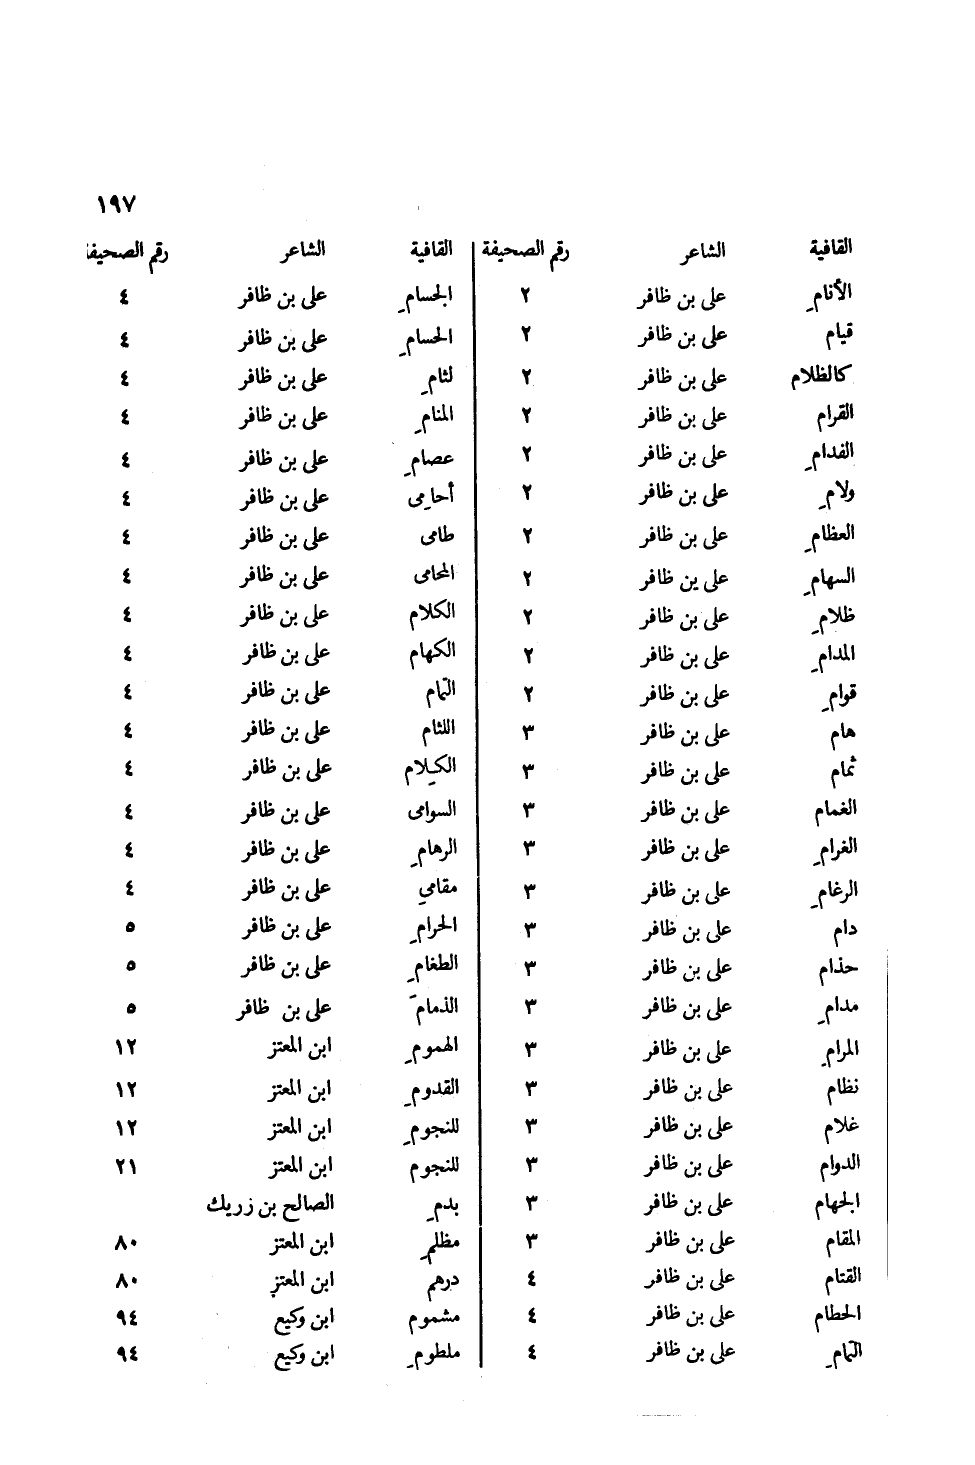 ١٩٧
القافية الشاعر رقم الصحيفة
الأنامِ على بن ظافر ٢
قيام على بن ظافر ٢
كالظلام على بن ظافر ٢
القرام على بن ظافر ٢
الفدامِ على بن ظافر ٢
ولامِ على بن ظافر ٢
العظامِ على بن ظافر ٢
السهامِ على ين ظافر ٢
ظلامِ على بن ظافر ٢
المدامِ على بن ظافر ٢
قوامِ على بن ظافر ٢
هام على بن ظافر ٣
ثمام على بن ظافر ٣
الغمام على بن ظافر ٣
الغرامِ على بن ظافر ٣
الرغامِ على بن ظافر ٣
دام على بن ظافر ٣
حذام على بن ظافر ٣
مدامِ على بن ظافر ٣
المرامِ على بن ظافر ٣
نظام على بن ظافر ٣
غلام على بن ظافر ٣
الدوام على بن ظافر ٣
الجهام على بن ظافر ٣
المقام على بن ظافر ٣
القتام على بن ظافر ٤
الحطام على بن ظافر ٤
التمامِ على بن ظافر ٤
القافية الشاعر رقم الصحيفة
الجسامِ على بن ظافر ٤
الحسامِ على بن ظافر ٤
لثامِ على بن ظافر ٤
المنامِ على بن ظافر ٤
عصامِ على بن ظافر ٤
أحامِى على بن ظافر ٤
طامى على بن ظافر ٤
المحامى على بن ظافر ٤
الكلام على بن ظافر ٤
الكهام على بن ظافر ٤
التمام على بن ظافر ٤
اللثام على بن ظافر ٤
الكِلام على بن ظافر ٤
السوامى على بن ظافر ٤
الرهامِ على بن ظافر ٤
مقامي على بن ظافر ٤
الحرامِ على بن ظافر ٥
الطغامِ على بن ظافر ٥
الذمامَ على بن ظافر ٥
الهمومِ ابن المعتز ١٢
القدومِ ابن المعتز ١٢
للنجومِ ابن المعتز ١٢
للنجوم ابن المعتز ٢١
بدمِ الصالح بن زريك
مظلمِ ابن المعتز ٨٠
درهم ابن المعتزِ ٨٠
مشموم ابن وكيع ٩٤
ملطومِ ابن وكيع ٩٤